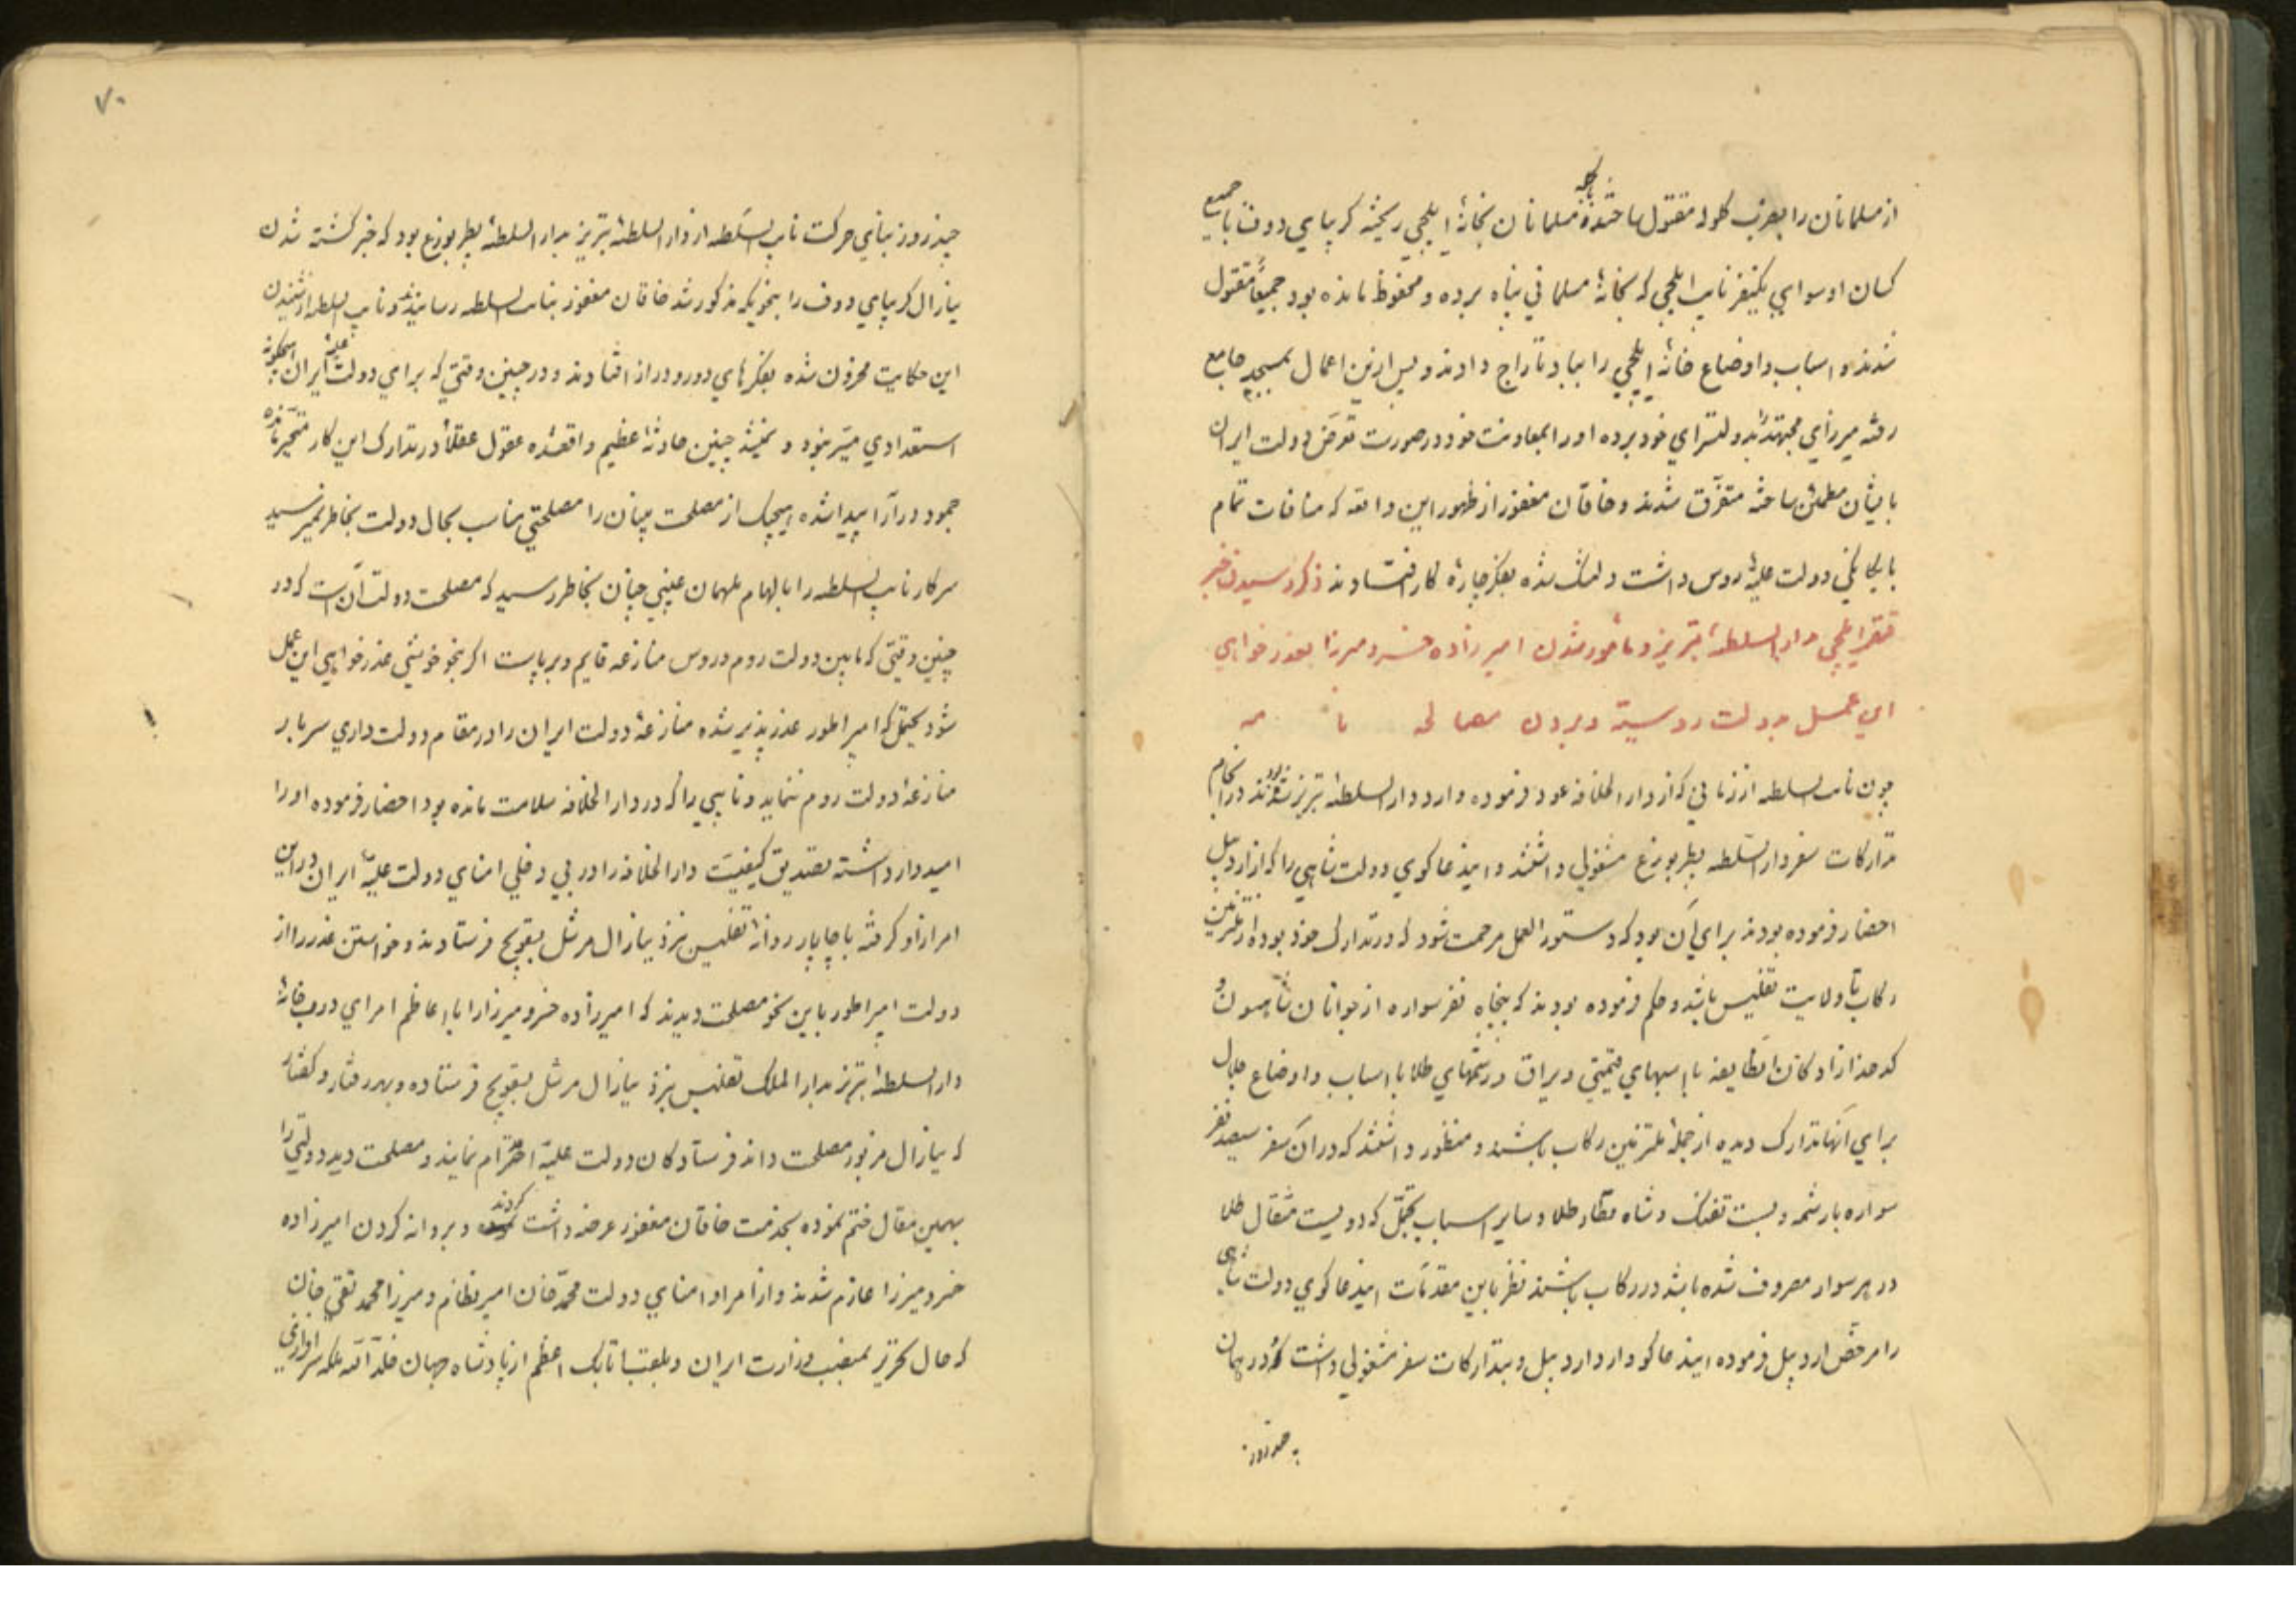 از مسلمانان را بضرب گلوله مقتول ساختند مسلمانان بخانهٔ ایلچی ریخته کریبای دوف با جمیع
کسان او سوای یکنفر نایب ایلچی که بخانهٔ مسلمانی پناه برده و محفوظ مانده بود جمیعاً مقتول
شدند و اسباب و اوضاع خانهٔ ایلچی را بباد تاراج دادند و پس ازین اعمال بمسجد جامع
رفته میرزای مجتهد را بدولتسرای خود برده او را بمعاونت خود در صورت تعرض دولت ایران
بایشان مطمئن ساخته متفرق شدند و خاقان مغفور از ظهور این واقعه که منافات تمام
با یکانگی دولت علیهٔ روس داشت دلتنک شده بفکر چارهٔ کار افتادند ذکر رسیدن خبر
قتل ایلچی بدار السلطنهٔ تبریز و مأمور شدن امیرزاده خسرو میرزا بعذر خواهی
این عمل بدولت روسیه و بردن مصالحه نامه
چون نایب السلطنه از زمانی که از دار الخلافه عود فرموده وارد دار السلطنهٔ تبریز شده بودند در انجام
تدارکات سفر دار السلطنه پطربورغ مشغولی داشتند و ایندعاکوی دولت شاهی را که از اردبیل
احضار فرموده بودند برای آن بود که دستور العمل مرحمت شود که در تدارک خود بوده از ملتزمین
رکاب تا ولایت تفلیس باشد و حکم فرموده بودند که پنجاه نفر سواره از جوانان شاهسون و
کدخدازادکان انطایفه با اسبهای قیمتی و یراق و رشمهای طلا با اسباب و اوضاع جلال
برای آنها تدارک دیده از جملهٔ ملتزمین رکاب باشند و منظور داشتند که در ان سفر سیصد نفر
سواره با رشمه و بست تفنک و شاه قطار طلا و سایر اسباب تجمل که دویست مثقال طلا
در هر سوار مصروف شده باشد در رکاب باشند نظر باین مقدمات ایندعاکوی دولت شاهی
را مرخص اردبیل فرموده ایندعاکو وارد اردبیل و بتدارکات سفر مشغولی داشت که در همان
چند روز
۷۰
چند روز بنای حرکت نایب السلطنه از دار السلطنهٔ تبریز بدار السلطنهٔ پطربورغ بود که خبر کشته شدن
ینارال کریبای دوف را بنحویکه مذکور شد خاقان مغفور بنایب السلطنه رسانیدند و نایب السلطنه از شنیدن
این حکایت محزون شده بفکرهای دور و دراز افتادند و در چنین وقتی که برای دولت علیهٔ ایران هیچگونه
استعدادی میسر نبود چنین حادثهٔ عظیم واقع شده عقول عقلا در تدارک این کار متحیر مانده
جمود در آرا پیدا شده هیچیک از مصلحت بینان را مصلحتی مناسب بحال دولت بخاطر نمیرسید
سرکار نایب السلطنه را بالهام ملهمان غیبی چنان بخاطر رسید که مصلحت دولت آن است که در
چنین وقتی که مابین دولت روم و روس منازعه قایم و برپاست اکر بنحو خوشی عذر خواهی این عمل
شود یحتمل که امپراطور عذر پذیر شده منازعهٔ دولت ایران را در مقام دولت داری سربار
منازعهٔ دولت روم ننماید و نایبی را که در دار الخلافه سلامت مانده بود احضار فرموده او را
امیدوار داشته تصدیق کیفیت دار الخلافه را در بی دخلی امنای دولت علیهٔ ایران در این
امر از او کرفته با چاپار روانهٔ تفلیس نزد ینارال مرشل بسقویچ فرستادند و خواستن عذر را از
دولت امپراطور باین نحو مصلحت دیدند که امیرزاده خسرو میرزا را با اعاظم امرای درب خانهٔ
دار السلطنهٔ تبریز بدار الملک تفلیس نزد ینارال مرشل بسقویچ فرستاده و بهر رفتار و کفتار
که ینارال مزبور مصلحت داند فرستادکان دولت علیه احترام نمایند و مصلحت دید دولتی را
بهمین مقال ختم نموده بخدمت خاقان مغفور عرضه داشت کردند و بروانه کردن امیرزاده
خسرو میرزا عازم شدند و از امرا و امنای دولت محمد خان امیر نظام و میرزا محمد تقی خان
که حال تحریر بمنصب وزارت ایران و بلقب اتابک اعظم از پادشاه جهان خلد الله ملکه سرافرازی